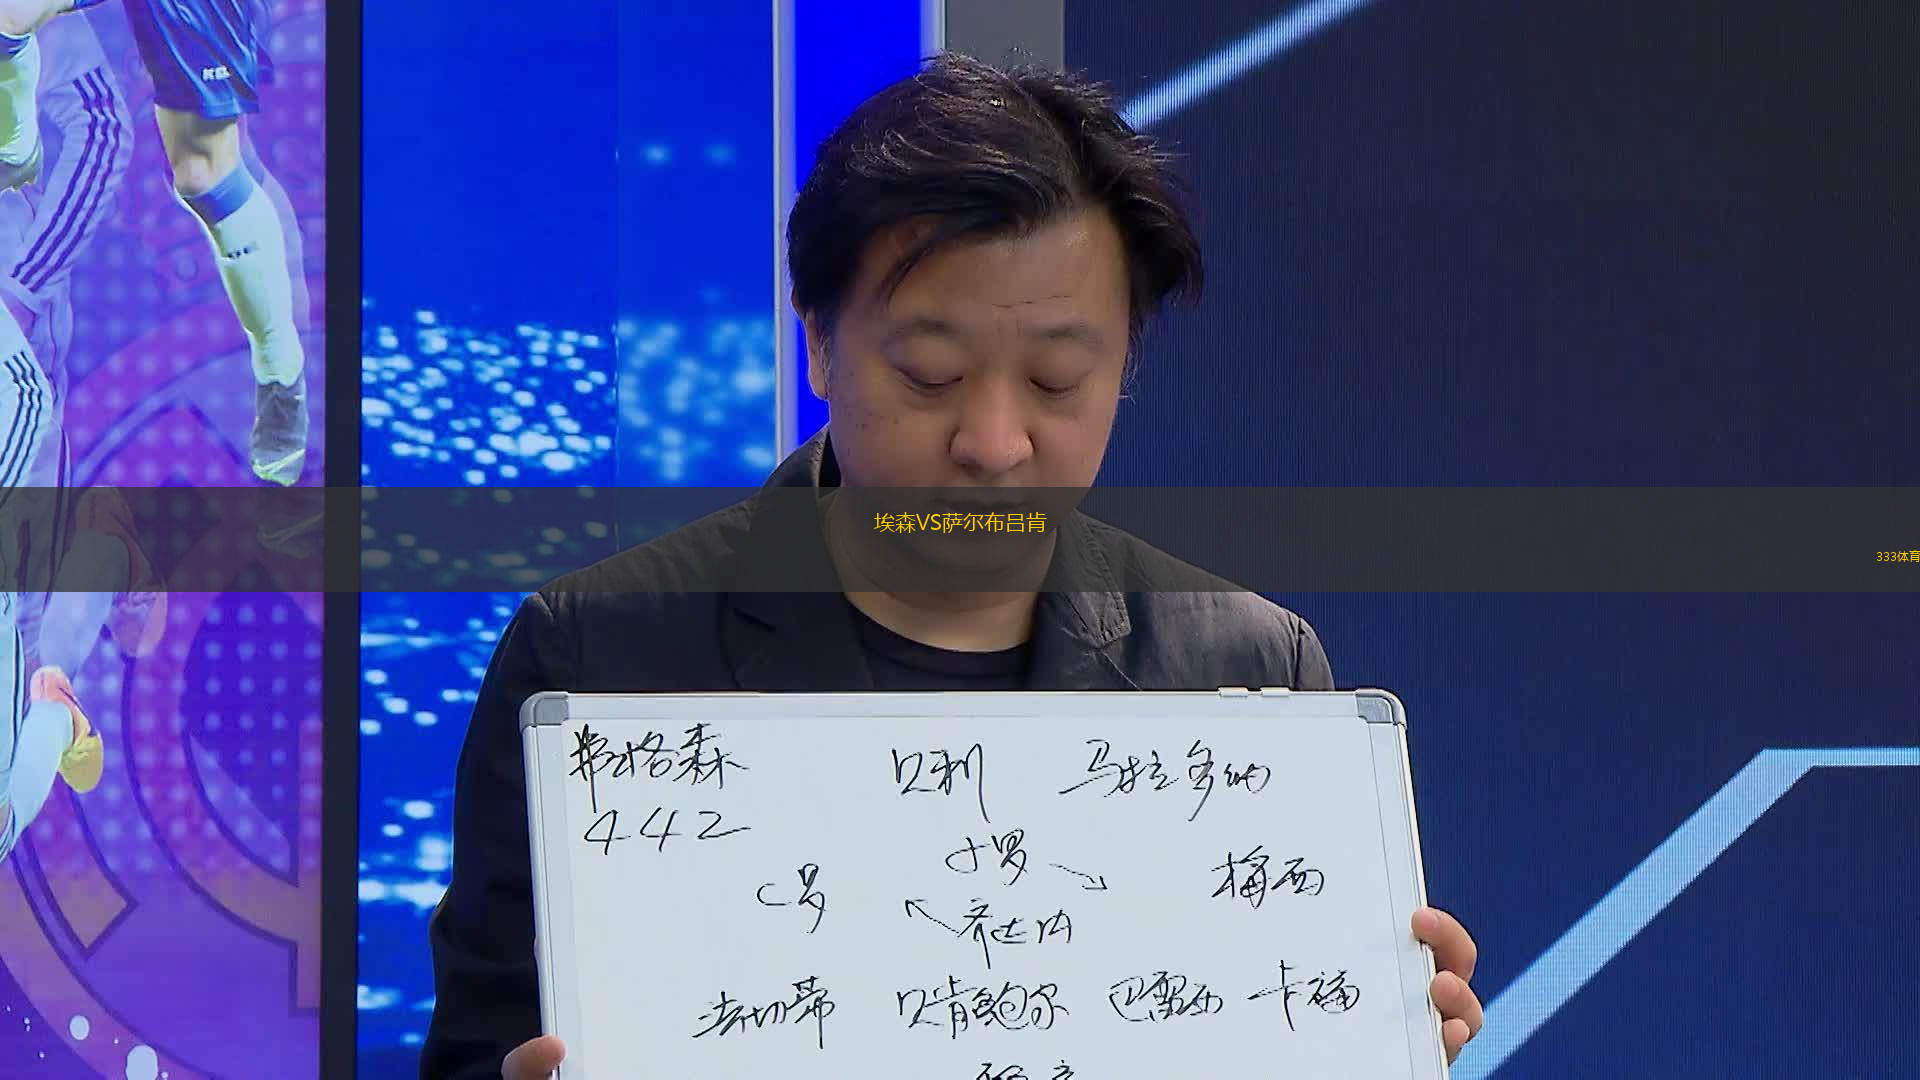 埃森VS萨尔布吕肯
333体育
弗格森 贝利 马拉多纳
442
小罗
C罗 梅西
齐达内
法切蒂 贝肯鲍尔 巴雷西 卡福